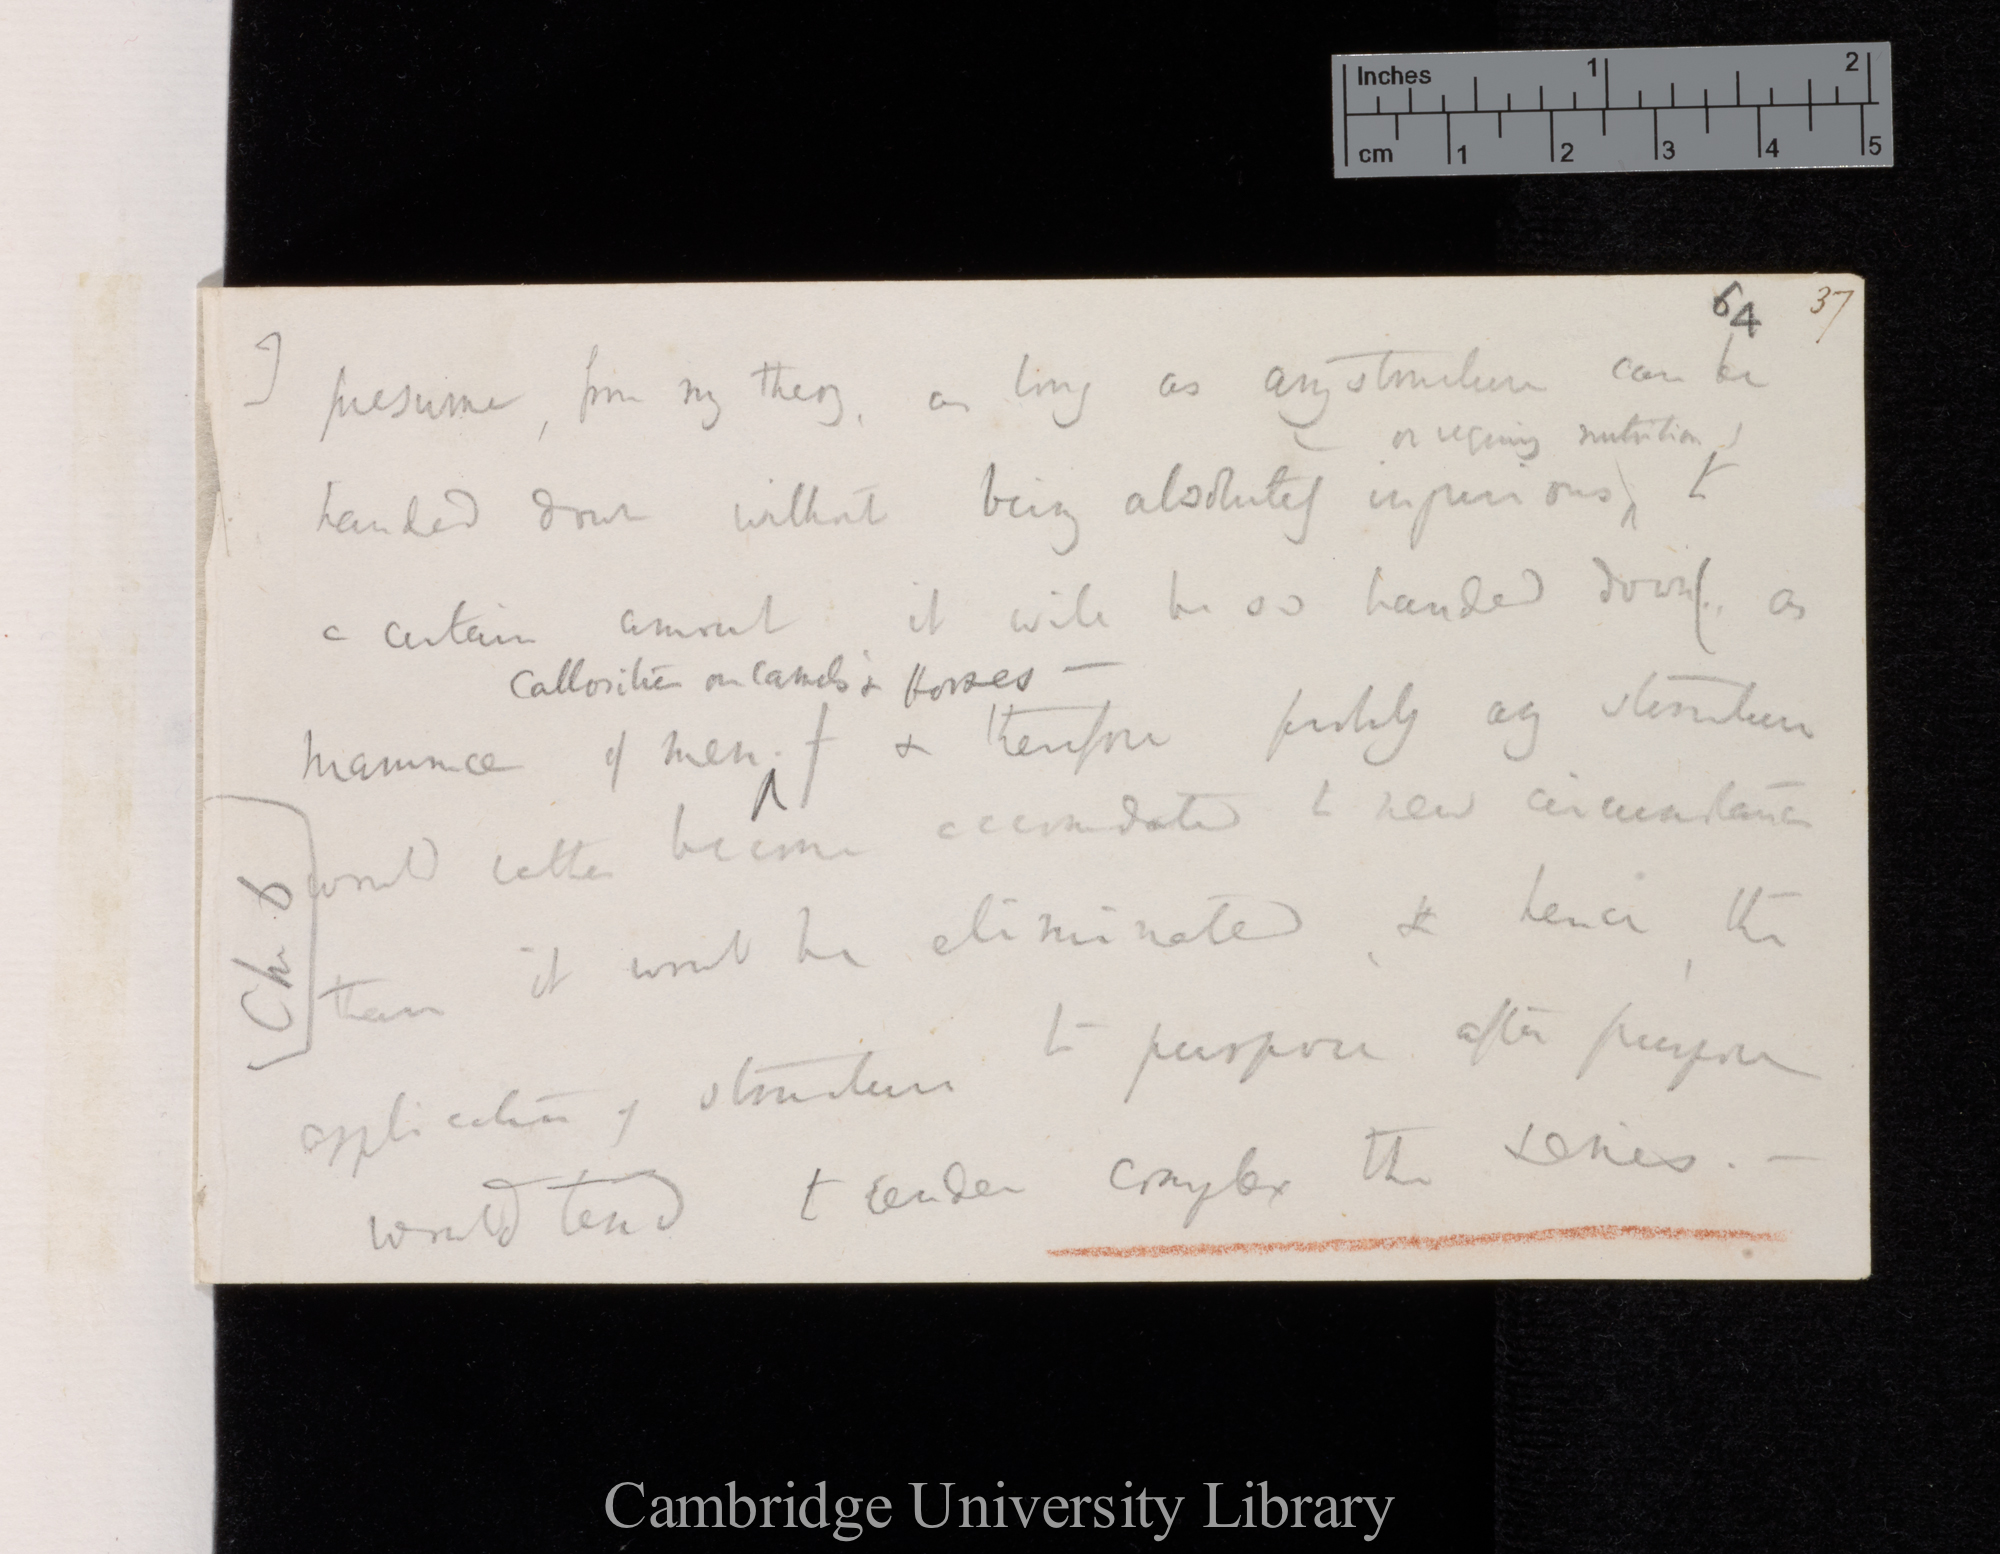 Inches 1 2
cm 1 2 3 4 5
64 37
I presume, from my theory, as long as any structure can be
(or requiring nutrition)
handed down without being absolutely injurious, to
a certain amount it will be so handed down (as
Callosities on Camels & Horses —
mammae of men.) & therefore probably any structure
would rather become accomodated to new circumstances
than it would be eliminated, & hence, the
application of structure to purpose after purpose
would tend to render complex the series. —
Ch. 8
Cambridge University Library